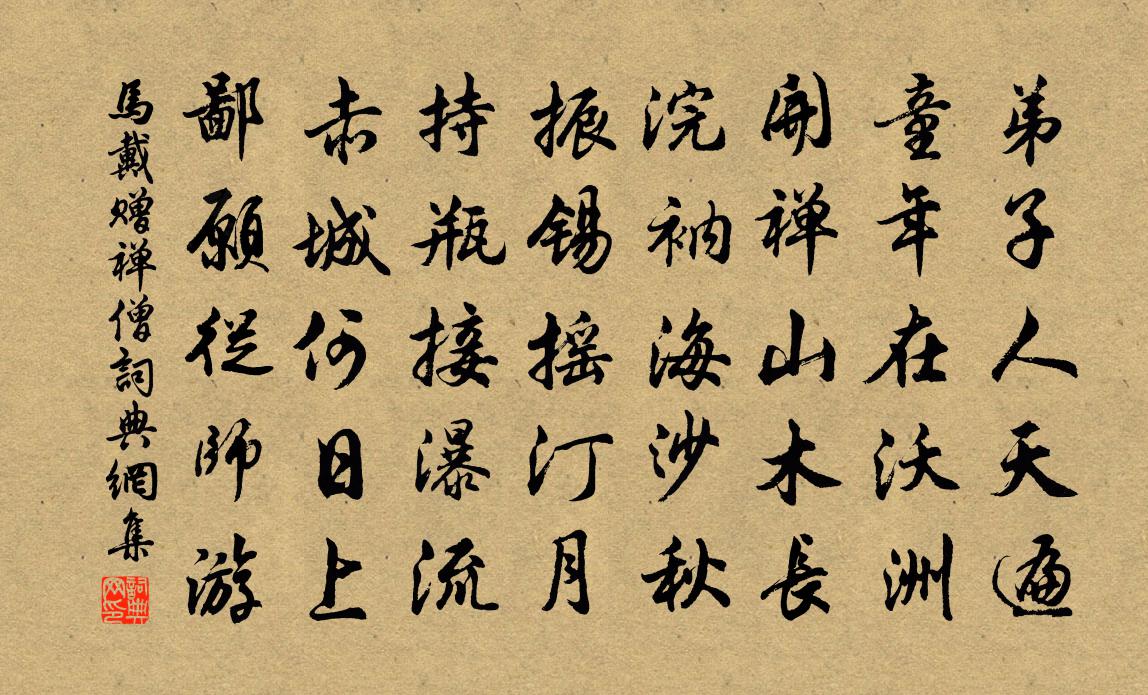 弟子人天遍
童年在沃洲
開禅山木長
浣衲海沙秋
振锡摇汀月
持瓶接瀑流
赤城何日上
鄙願從師游
馬戴赠禅僧詞典網集
詞典網印